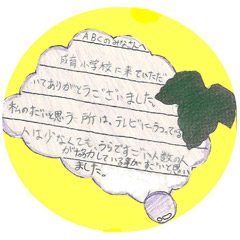 ABCのみなさんへ
成育小学校に来ていただ
いてありがとうございました。
私のすごいと思う所は、テレビにうつってる
人は少なくても、うらですごい人数の人
が協力している事がすごいと思い
ました。